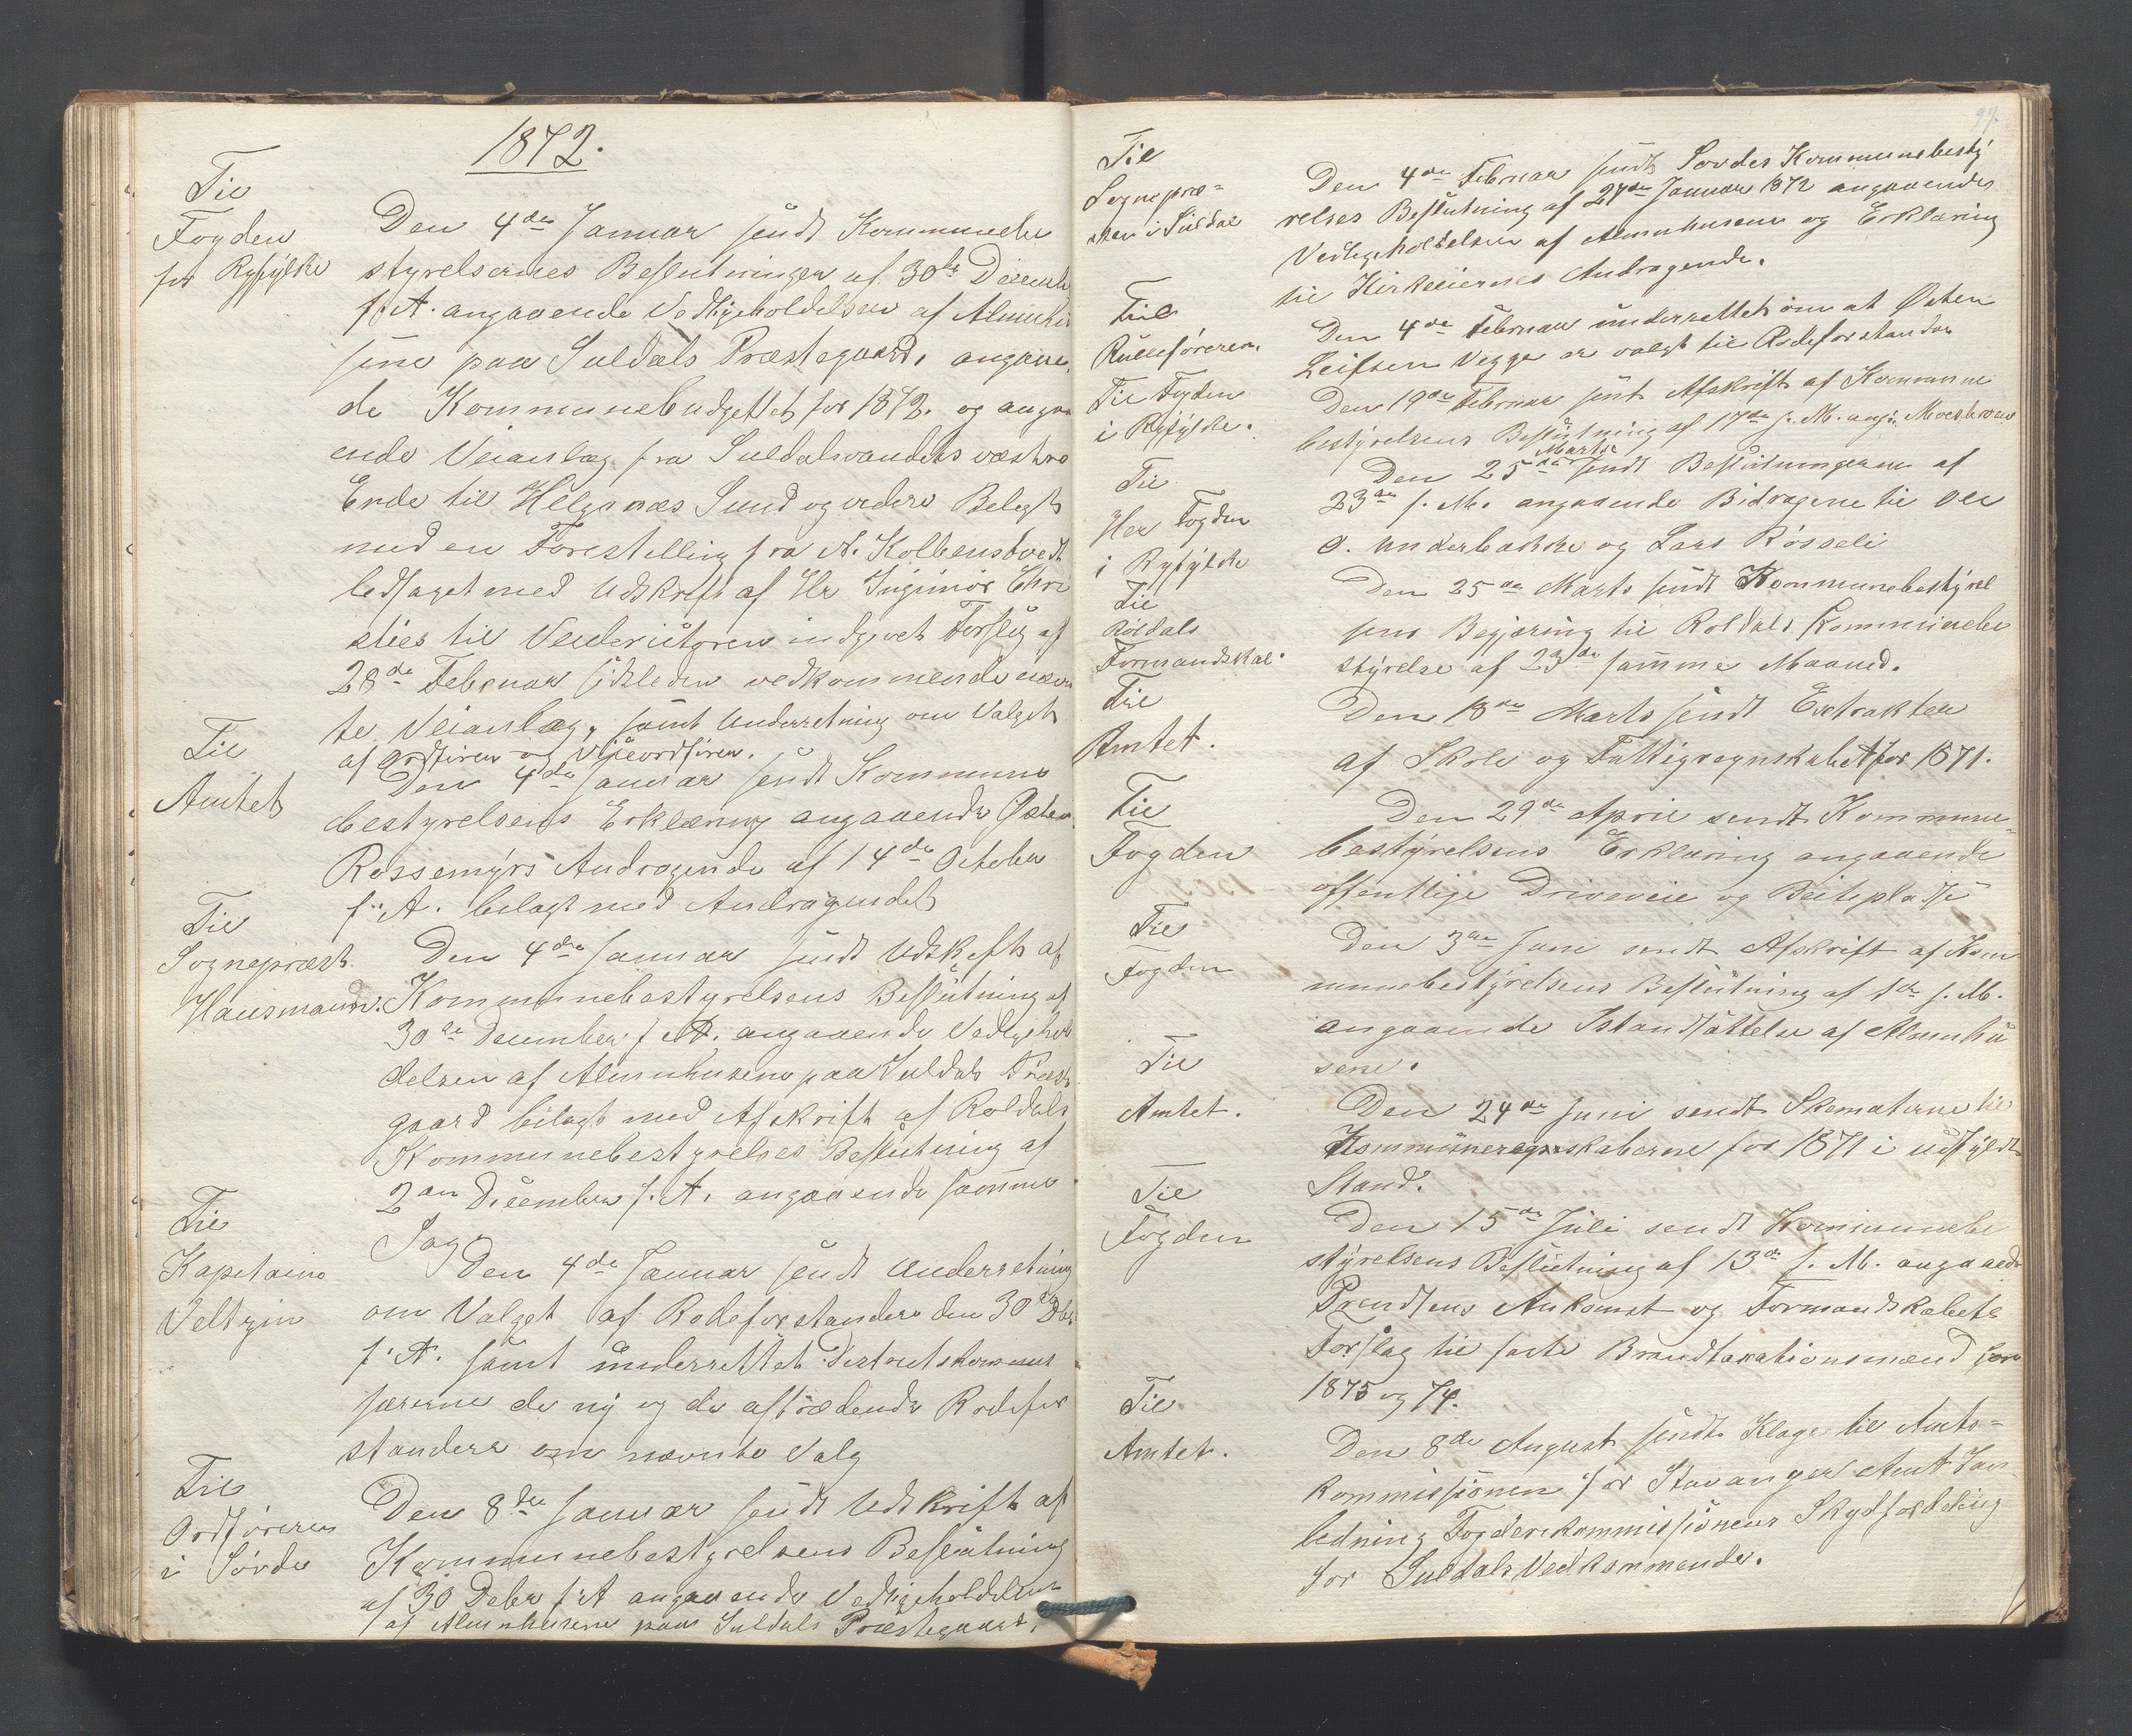 1872.
Til
Fogden
for Ryfylke
Den 4de Januar sendt Kommunebe
styrelsernes Beslutninger af 30te Decemb
f. A. angaaende Vedligeholdelsen af Almuehu
sene paa Suldals Præstegaard, angaaen
de Kommunebudgettet for 1872. og angaa
ende Veianlæg fra Suldalsvandets væstre
Ende til Helganæs Sund og videre Belagt
med en Forestilling fra A. Kolbenstvedt
ledsaget med Udskrift af Hr Ingeniør Chri
sties til Veidirektøren indgivet Forslag af
28de Februar sidstleden vedkommende nævn
te Veianlæg, samt Underretning om Valget
af Ordfører og Viceordfører.
Til
Amtet
Den 4de Januar sendt Kommune
bestyrelsens Erklæring angaaende Østen
Rossemyrs Andragende af 14de October
f. A. belagt med Andragendet
Til
Sognepræst
Hausmann.
Den 4de Januar sendt Udskrft af
Kommunebestyrelsens Beslutning af
30de December f. A. angaaende Vedligehol
delsen af Almuehusene paa Suldals Præste
gaard bilagt med Afskrift af Roldals
Kommunebestyrelses Beslutning af
2den December f. A. angaaende samme
Sag.
Til
Kapetaine
Veltzin
Den 4de Januar sendt Underretning
om Valget af Rodeforstandere den 30te Dbr
f. A. samt underrettet Distriktskommis
særerne de ny og de aftrædende Rodefor
standere om nævnte Valg
Til
Ordføreren
i Sovde
Den 8de Januar sendt Udskrift af
Kommunebestyrelsens Beslutning
af 30 Debr f. A angaaende Vedligeholdelsen
af Almuehusene paa Suldals Præstegaard.
97.
Til
Sognepræ=
sten i Suldal
Den 4de Februar sendt Sovdes Kommunebesty
relses Beslutning af 27de Januar 1872 angaaende
Vedligeholdelsen af Almuehusene og Erklæring
til Kirkeeiernes Andragende.
Til
Rulleføreren.
Den 4de Februar underrettet om at Østen
Leifsen Vegge er valgt til Rodeforstander
Til Fogden
i Ryfylke.
Den 19de Februar sent Afskrift af Kommune
bestyrelsens Beslutning af 17de s. M. ang:
Til
Her Fogden
i Ryfylke
Den 25de Marts sendt Beslutningerne af
23de s. M. angaaende Bidragene til Ole
O. Underbakke og Lars Røsseli
Til
Roldals
Formandskab.
Den 25de Marts sendt Kommunebestyrel
sens Begjæring til Roldals Kommunebe
styrelse af 23de samme Maaned.
Til
Amtet.
Den 18de Marts sendt Extrakten
af Skole og Fattigregnskabet for 1871.
Til
Fogden
Den 29de April sendt Kommune=
bestyrelsens Erklæring angaaende
offentlige Driveveie og Beiteplatse
Til
Fogden
Den 3de Juni sendt Afskrift af Kom
munebestyrelsens Beslutning af 1de s. M.
angaaende Istandsættelse af Almuehu
sene.
Til
Amtet.
Den 24de Juni sendt Skematerne til
Kommuneregnskaberne for 1871 i udfyldt
Stand.
Til
Fogden
Den 15de Juli sendt Kommunebe
styrelsens Beslutning af 13de s. M. angaaende
Prendsens Ankomst og Formandskabets
Forslag til faste Brandtaxationsmænd for
1875 og 74.
Til
Amtet.
Den 8de August sendt Klage til Amts=
kommissionen for Stavanger Amt i an
ledning Forderkommissionens Skydsfordeling
for Suldals Vedkommende.